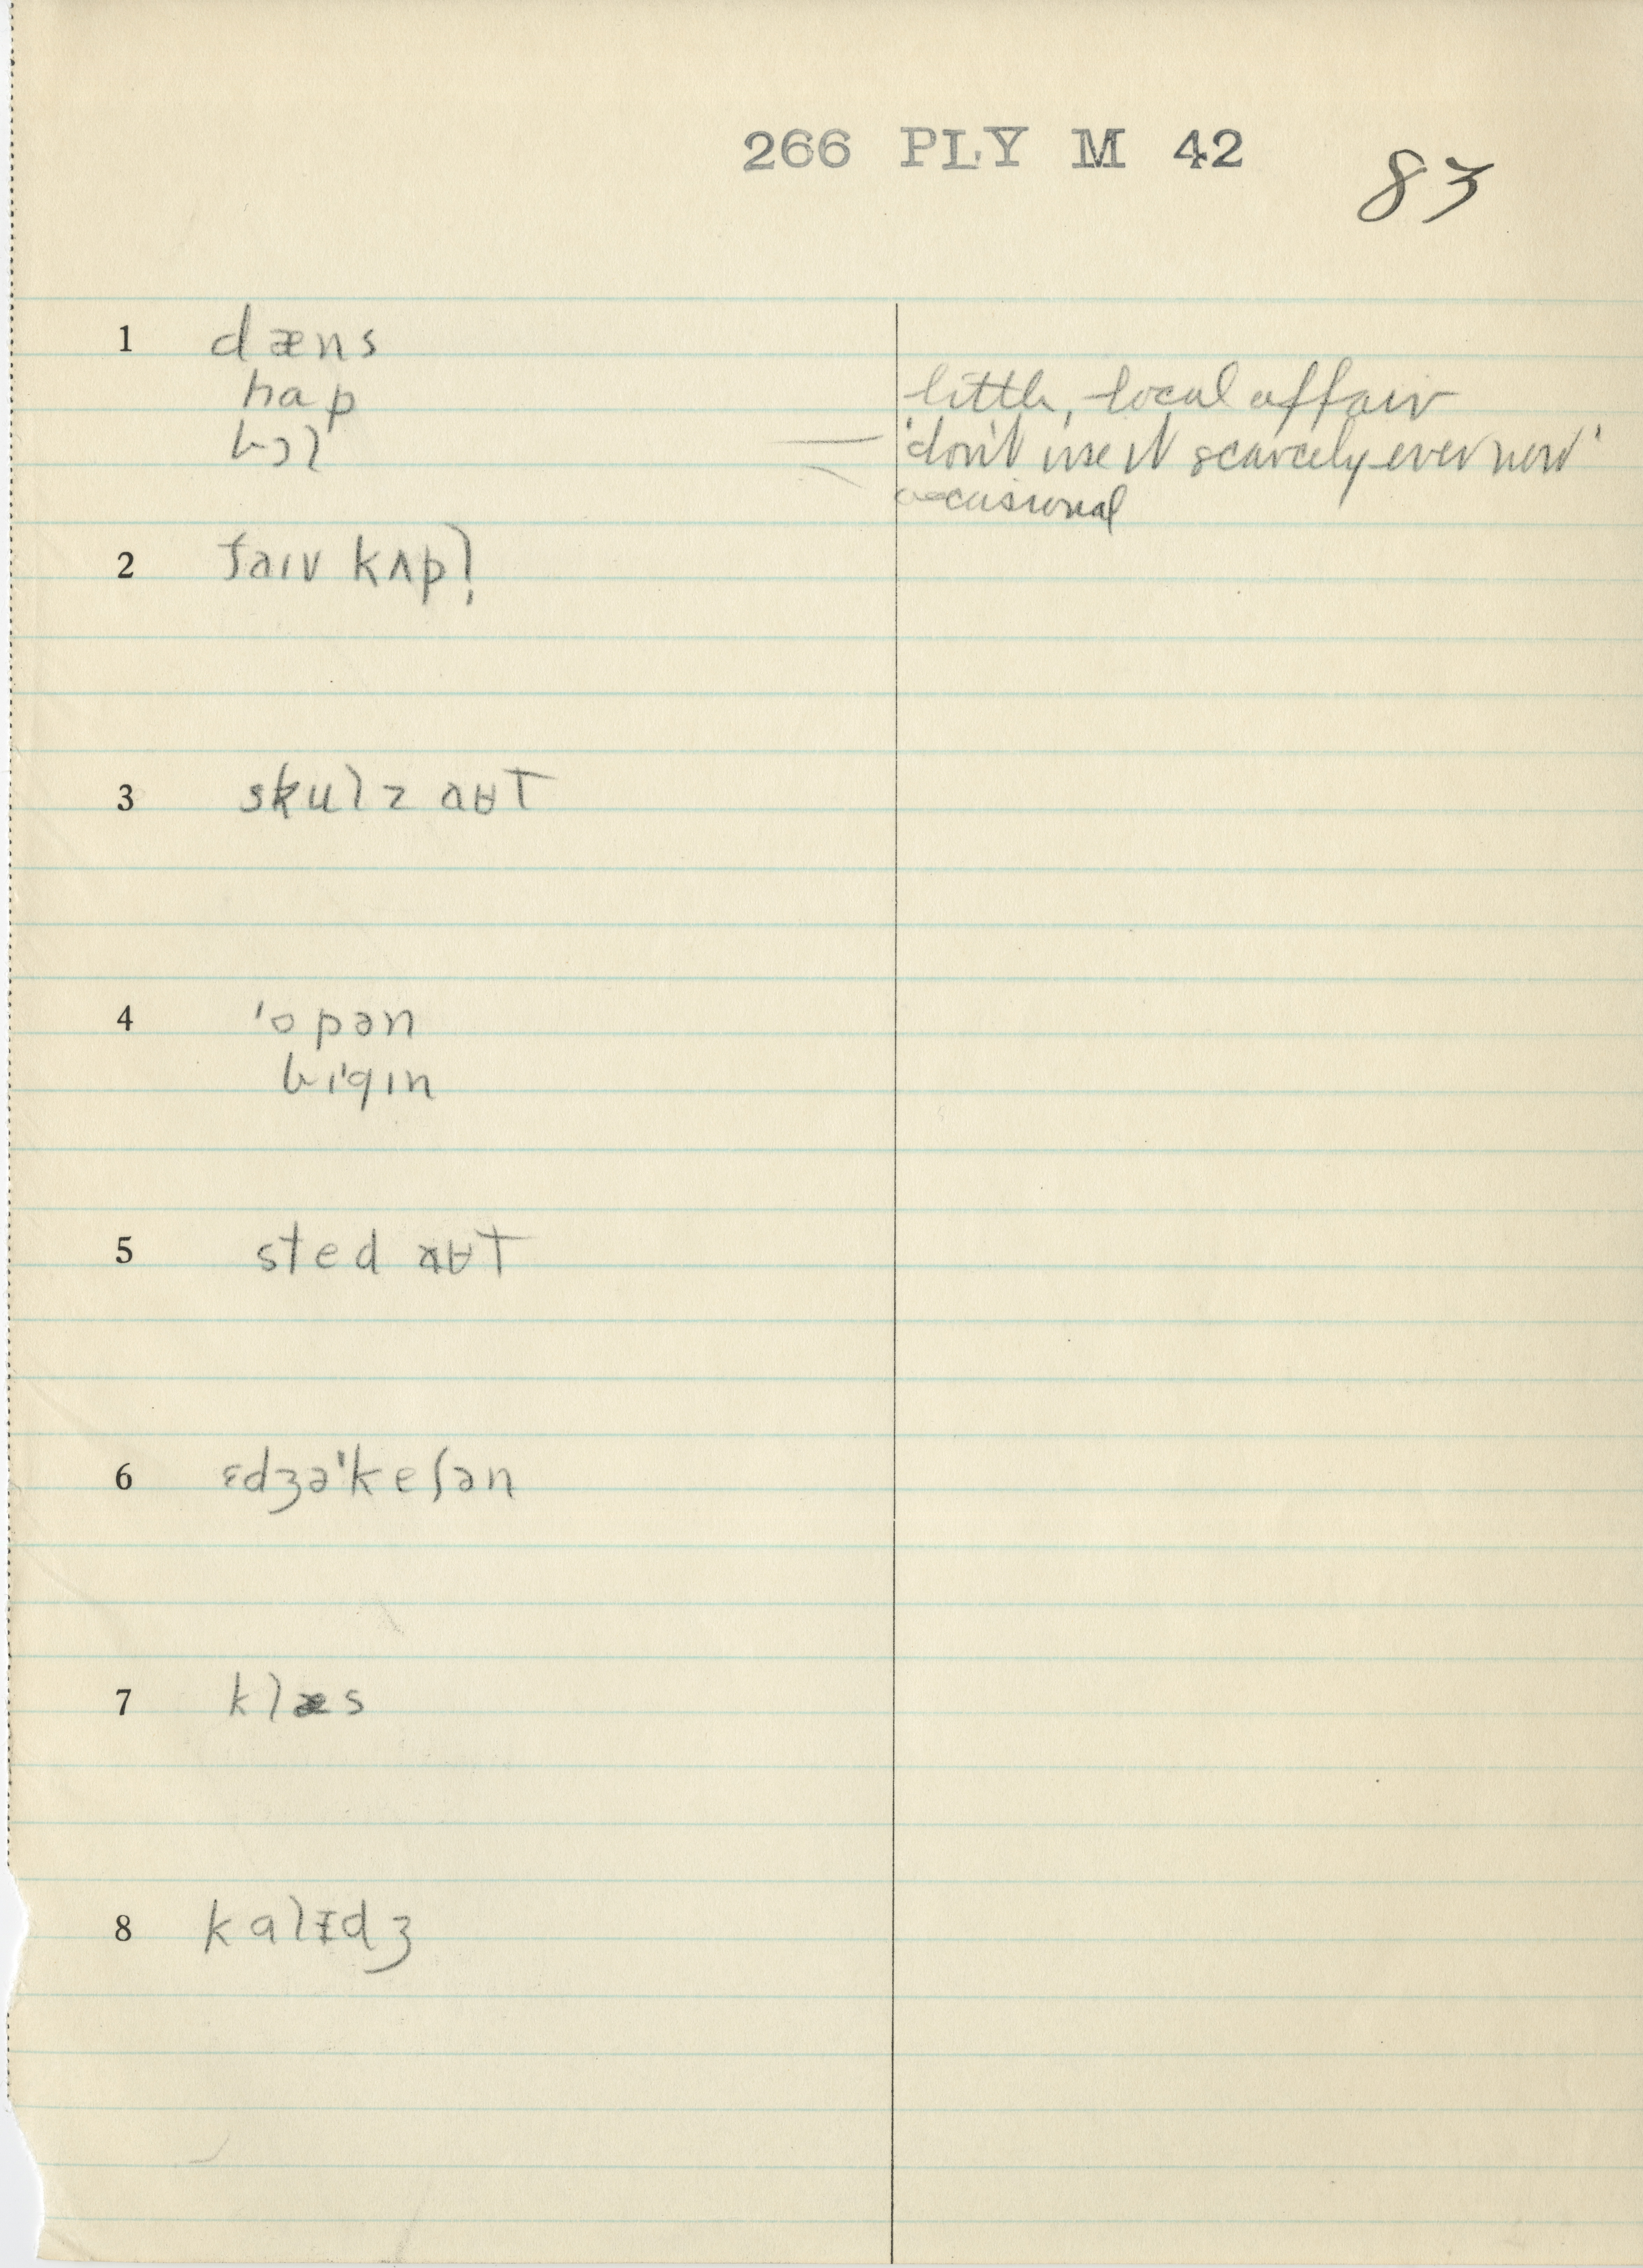 266 PLY M 42
83
1 dæns
hap little, local affair
bɔl — 'don't use it scarcely ever now'
occasional
2 faɪv kʌpl̩
3 skulz aʉt
4 'opən
bɪ'gɪn
5 sted aʉt
6 ɛdʒə'keʃən
7 klæs
8 kalɪdʒ